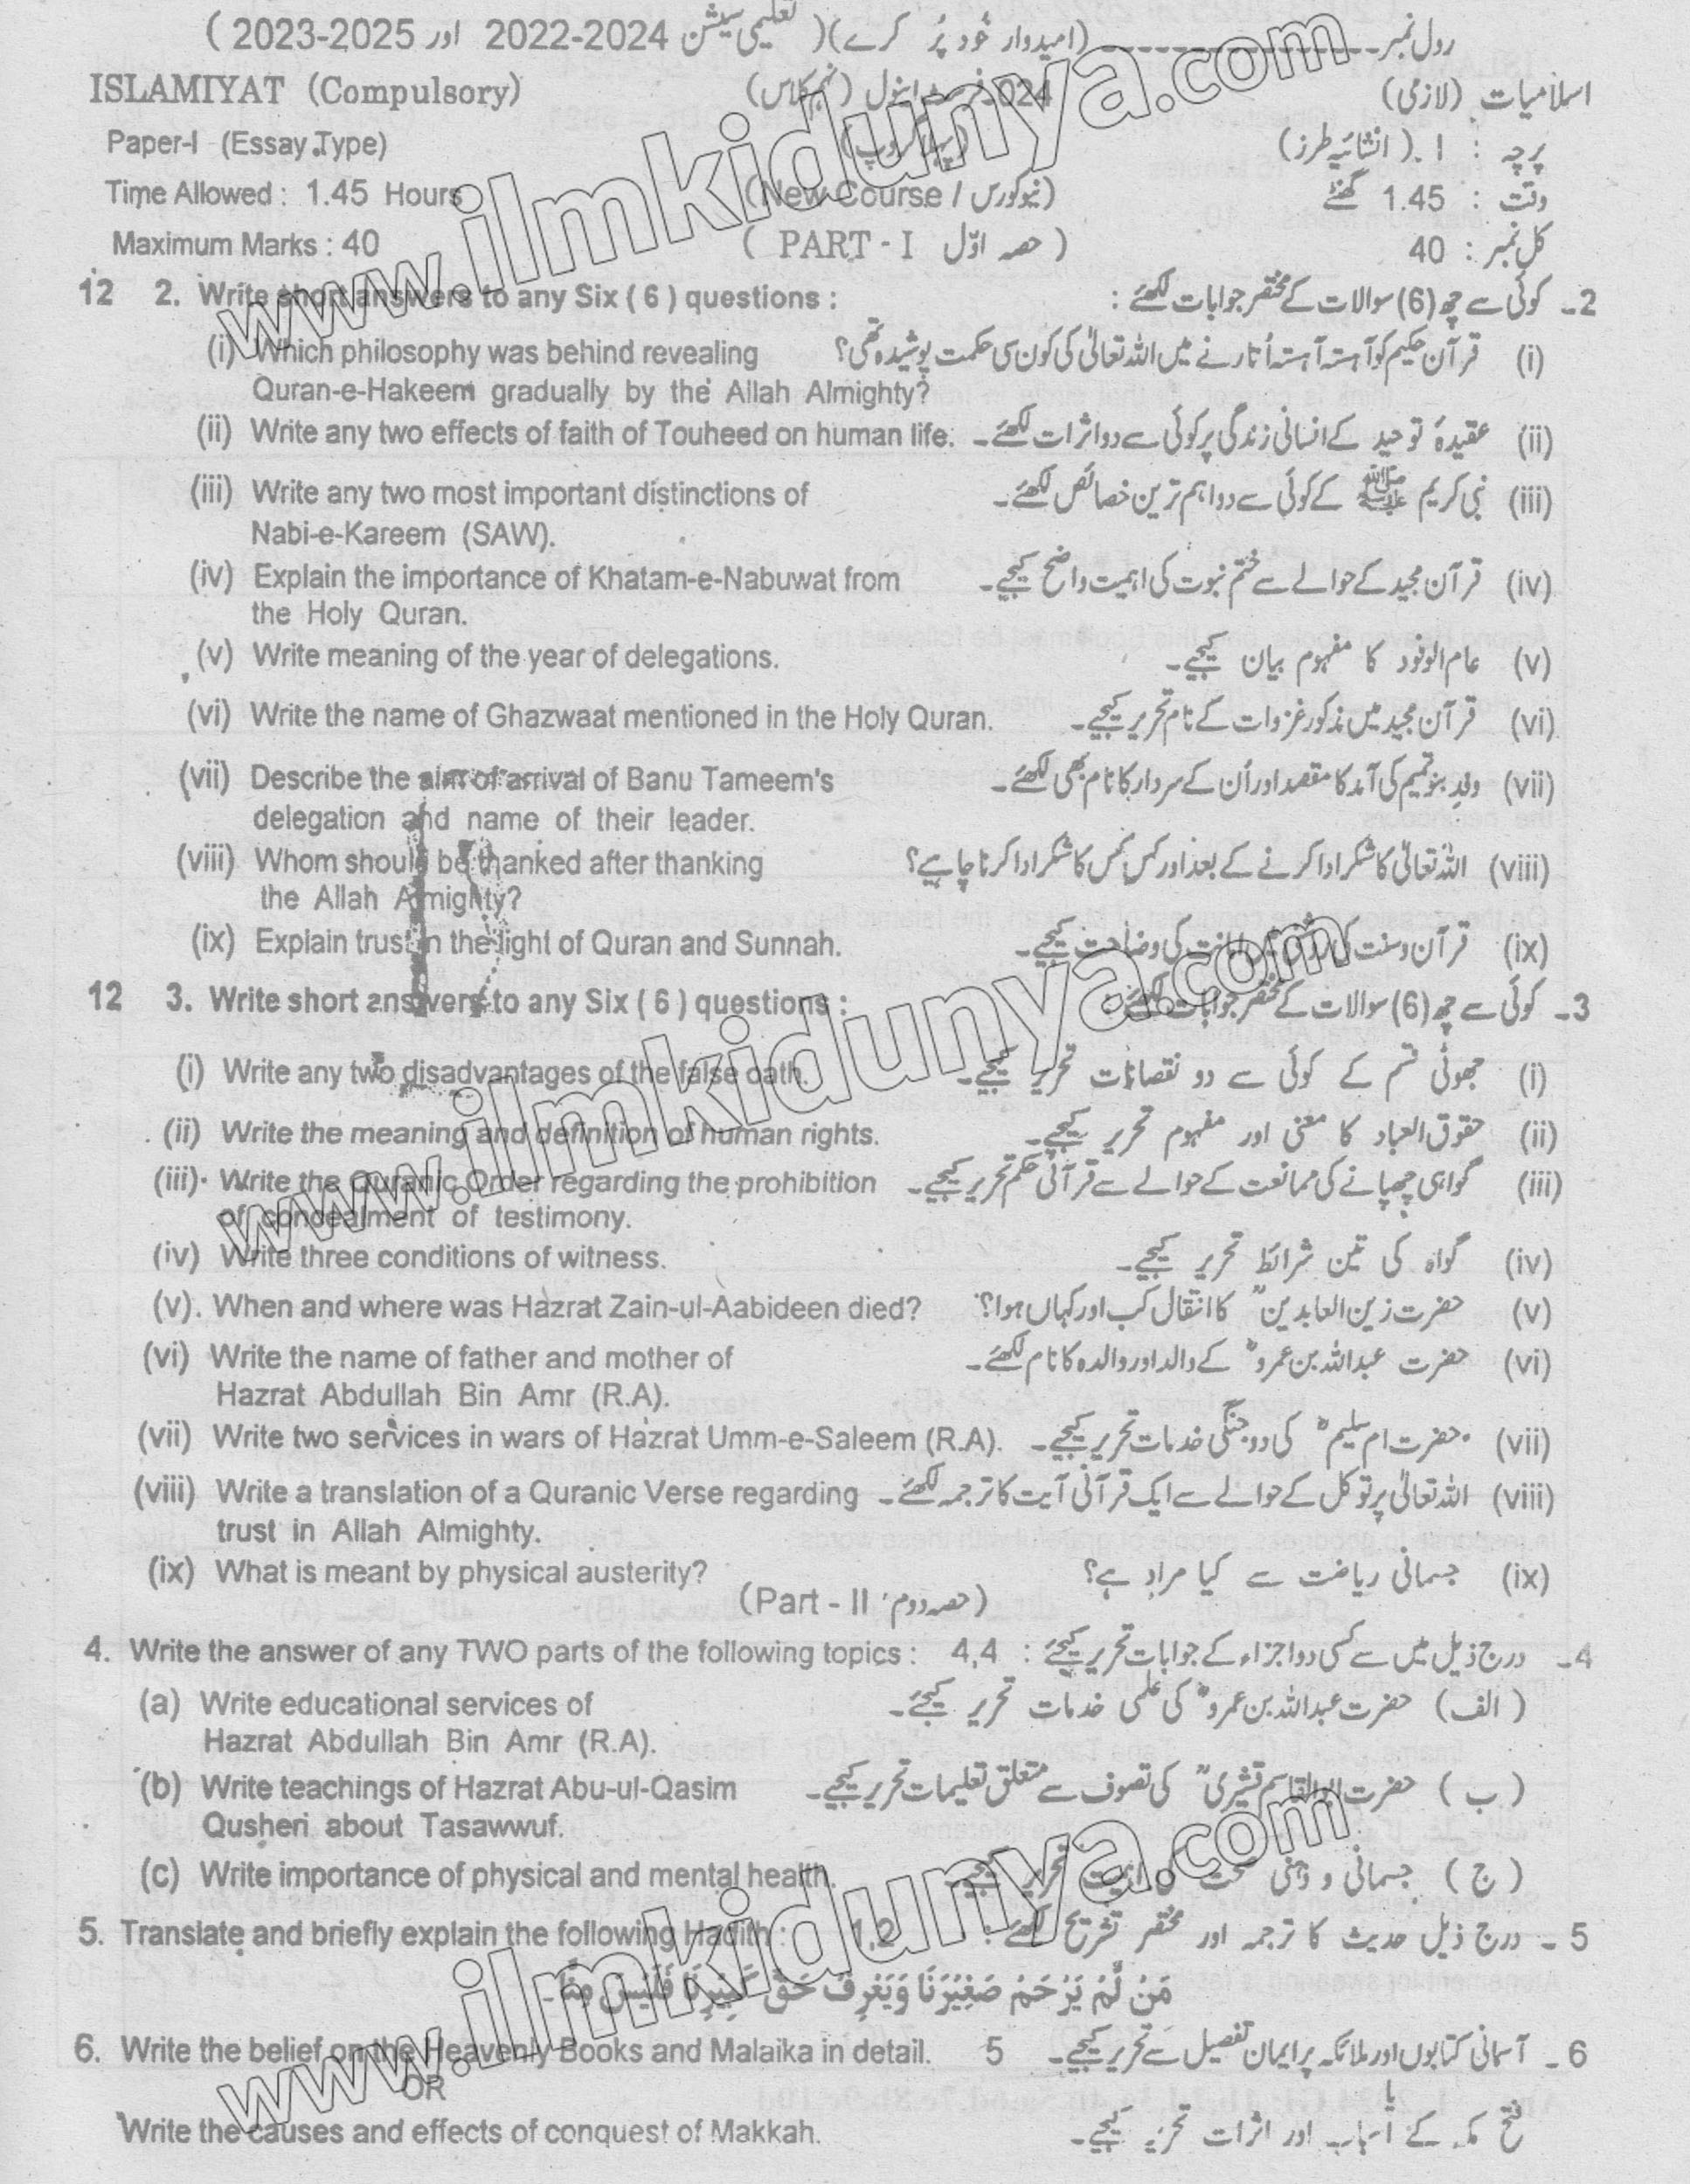 رول نمبر ---------------- (امیدوار خود پُر کرے) ( تعلیمی سیشن 2022-2024 اور 2023-2025 )
ISLAMIYAT (Compulsory) (نہم کلاس) اسلامیات (لازمی)
Paper-I (Essay Type) پرچہ : I (انشائیہ طرز)
Time Allowed : 1.45 Hours (New Course / نیوکورس) وقت : 1.45 گھنٹے
Maximum Marks : 40 ( PART - I حصہ اوّل ) کل نمبر : 40
12 2. Write short answers to any Six ( 6 ) questions : 2۔ کوئی سے چھ (6) سوالات کے مختصر جوابات لکھئے :
(i) Which philosophy was behind revealing (i) قرآن حکیم کو آہستہ آہستہ اُتارنے میں اللہ تعالیٰ کی کون سی حکمت پوشیدہ تھی؟
Quran-e-Hakeem gradually by the Allah Almighty?
(ii) Write any two effects of faith of Touheed on human life. (ii) عقیدۂ توحید کے انسانی زندگی پر کوئی سے دو اثرات لکھئے۔
(iii) Write any two most important distinctions of (iii) نبی کریم ﷺ کے کوئی سے دو اہم ترین خصائص لکھئے۔
Nabi-e-Kareem (SAW).
(iv) Explain the importance of Khatam-e-Nabuwat from (iv) قرآن مجید کے حوالے سے ختم نبوت کی اہمیت واضح کیجیے۔
the Holy Quran.
(v) Write meaning of the year of delegations. (v) عام الوفود کا مفہوم بیان کیجیے۔
(vi) Write the name of Ghazwaat mentioned in the Holy Quran. (vi) قرآن مجید میں مذکور غزوات کے نام تحریر کیجیے۔
(vii) Describe the aim of arrival of Banu Tameem's (vii) وفدِ بنو تمیم کی آمد کا مقصد اور اُن کے سردار کا نام بھی لکھئے۔
delegation and name of their leader.
(viii) Whom should be thanked after thanking (viii) اللہ تعالیٰ کا شکر ادا کرنے کے بعد اور کس کس کا شکر ادا کرنا چاہیے؟
the Allah Almighty?
(ix) Explain trust in the light of Quran and Sunnah. (ix) قرآن و سنت کی روشنی میں امانت کی وضاحت کیجیے۔
12 3. Write short answers to any Six ( 6 ) questions : 3۔ کوئی سے چھ (6) سوالات کے مختصر جوابات لکھئے :
(i) Write any two disadvantages of the false oath. (i) جھوٹی قسم کے کوئی سے دو نقصانات تحریر کیجیے۔
(ii) Write the meaning and definition of human rights. (ii) حقوق العباد کا معنی اور مفہوم تحریر کیجیے۔
(iii) Write the Quranic Order regarding the prohibition (iii) گواہی چھپانے کی ممانعت کے حوالے سے قرآنی حکم تحریر کیجیے۔
of concealment of testimony.
(iv) Write three conditions of witness. (iv) گواہ کی تین شرائط تحریر کیجیے۔
(v). When and where was Hazrat Zain-ul-Aabideen died? (v) حضرت زین العابدینؒ کا انتقال کب اور کہاں ہوا؟
(vi) Write the name of father and mother of (vi) حضرت عبداللہ بن عمروؓ کے والد اور والدہ کا نام لکھئے۔
Hazrat Abdullah Bin Amr (R.A).
(vii) Write two services in wars of Hazrat Umm-e-Saleem (R.A). (vii) حضرت ام سلیمؓ کی دو جنگی خدمات تحریر کیجیے۔
(viii) Write a translation of a Quranic Verse regarding (viii) اللہ تعالیٰ پر توکل کے حوالے سے ایک قرآنی آیت کا ترجمہ لکھئے۔
trust in Allah Almighty.
(ix) What is meant by physical austerity? (ix) جسمانی ریاضت سے کیا مراد ہے؟
(Part - II حصہ دوم)
4. Write the answer of any TWO parts of the following topics : 4,4 4۔ درج ذیل میں سے کسی دو اجزاء کے جوابات تحریر کیجیے :
(a) Write educational services of (الف) حضرت عبداللہ بن عمروؓ کی علمی خدمات تحریر کیجیے۔
Hazrat Abdullah Bin Amr (R.A).
(b) Write teachings of Hazrat Abu-ul-Qasim (ب) حضرت ابوالقاسم قشیریؒ کی تصوف سے متعلق تعلیمات تحریر کیجیے۔
Qusheri about Tasawwuf.
(c) Write importance of physical and mental health. (ج) جسمانی و ذہنی صحت کی اہمیت تحریر کیجیے۔
5. Translate and briefly explain the following Hadith : 1,2 5۔ درج ذیل حدیث کا ترجمہ اور مختصر تشریح لکھئے :
مَنْ لَّمْ يَرْحَمْ صَغِيْرَنَا وَيَعْرِفْ حَقَّ كَبِيْرِنَا فَلَيْسَ مِنَّا۔
6. Write the belief on the Heavenly Books and Malaika in detail. 5 6۔ آسمانی کتابوں اور ملائکہ پر ایمان تفصیل سے تحریر کیجیے۔
OR یا
Write the causes and effects of conquest of Makkah. فتح مکہ کے اسباب اور اثرات تحریر کیجیے۔
www.ilmkidunya.com
www.ilmkidunya.com
www.ilmkidunya.com